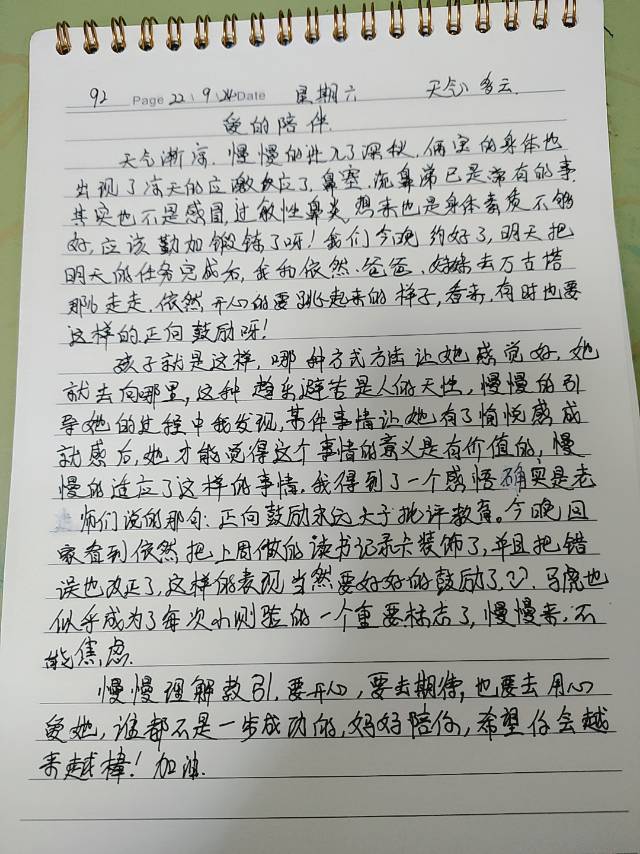 92 Page 22 \ 9 \ 24 Date 星期六 天气: 多云.
爱的陪伴.
天气渐凉.慢慢的进入了深秋.俩宝的身体也
出现了凉天的应激反应了,鼻塞.流鼻涕已是常有的事.
其实也不是感冒,过敏性鼻炎.想来也是身体素质不够
好,应该勤加锻练了呀!我们今晚约好了,明天把
明天的任务完成后,我和依然.爸爸.妹妹去万古塔
那儿走走.依然开心的要跳起来的样子,看来,有时也要
这样的正向鼓励呀!
孩子就是这样,哪种方式方法让她感觉好,她
就去向哪里,这种趋乐避苦是人的天性,慢慢的引
导她的过程中我发现,某件事情让她有了愉悦感成
就感后,她才能觉得这个事情的意义是有价值的,慢
慢的适应了这样的事情.我得到了一个感悟确实是老
师们说的那句:正向鼓励永远大于批评教育。今晚回
家看到依然把上周做的读书记录卡装饰了,并且把错
误也改正了,这样的表现当然要好好的鼓励了,马虎也
似乎成为了每次小测验的一个重要标志了,慢慢来,不
能焦虑.
慢慢理解教引,要开心,要去期待,也要去用心
爱她,谁都不是一步成功的,妈妈陪你,希望你会越
来越棒!加油.